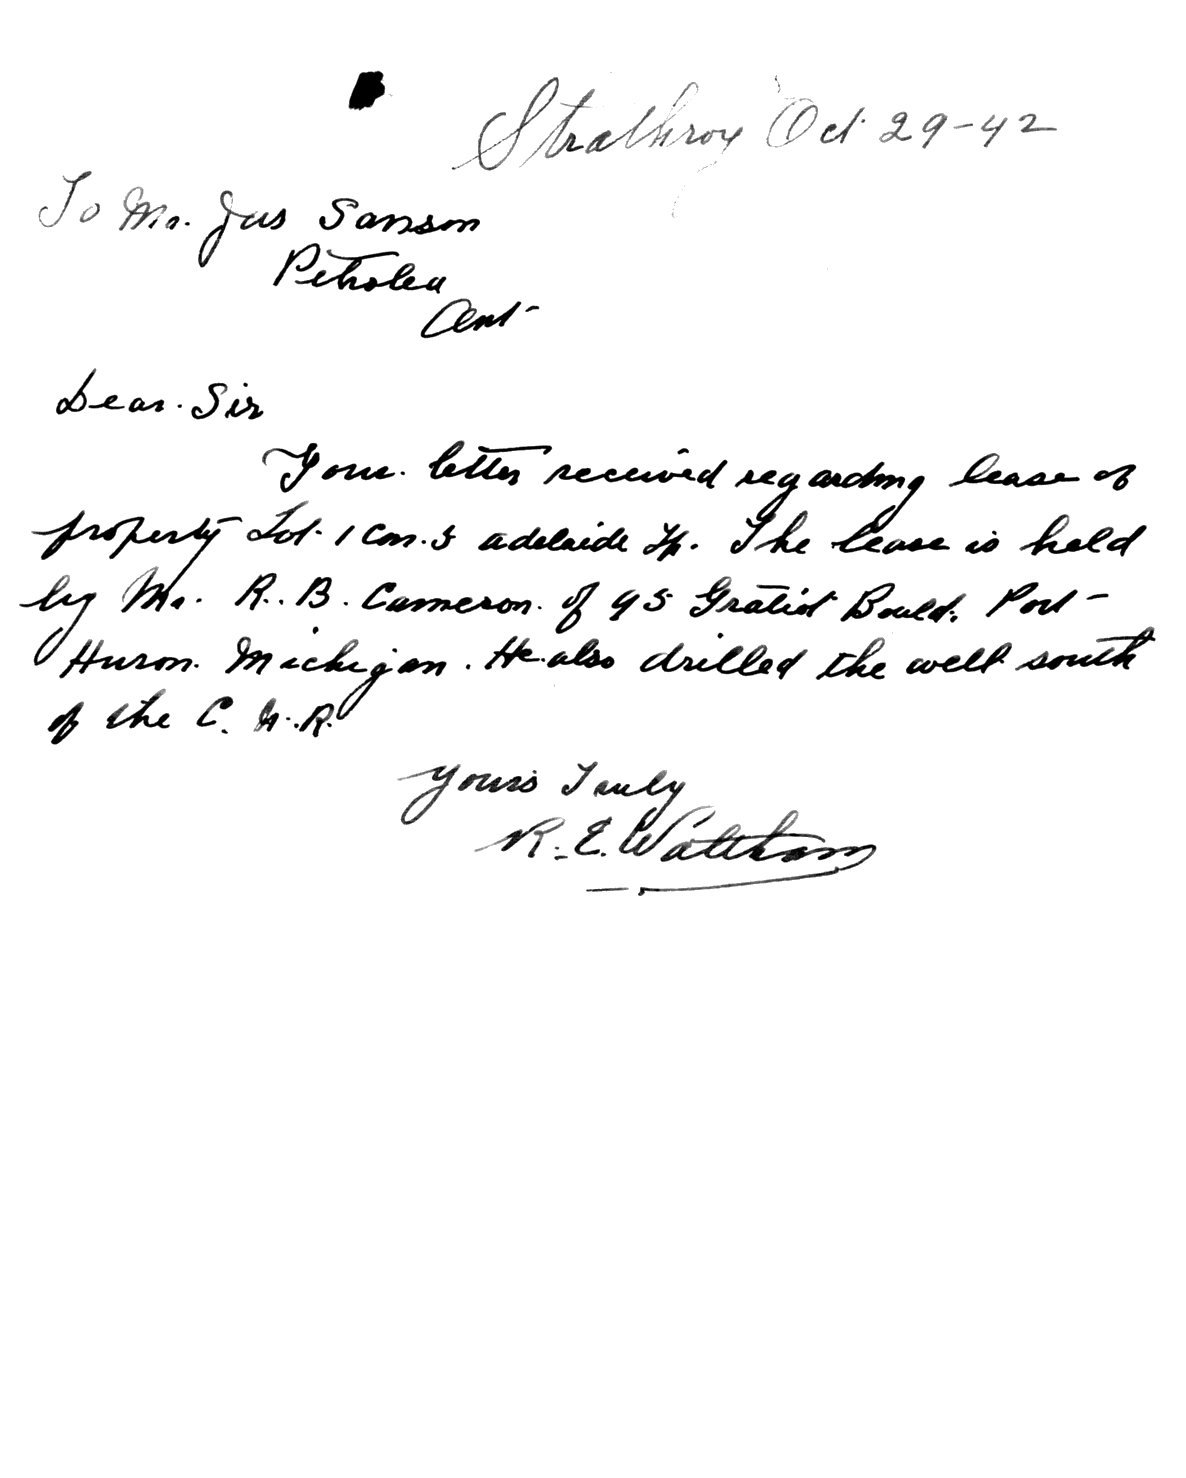 Strathroy Oct 29-42
To Mr. Jas Sanson
Petrolea
Ont-
Dear. Sir
Your. letter received regarding lease of
property Lot. 1 Con. 5 adelaide Tp. The lease is held
by Mr. R. B. Cameron. of 95 Gratiot Bould. Port-
Huron. Michigan. He also drilled the well south
of the C. N. R.
Yours Truly
R. E. Waltham